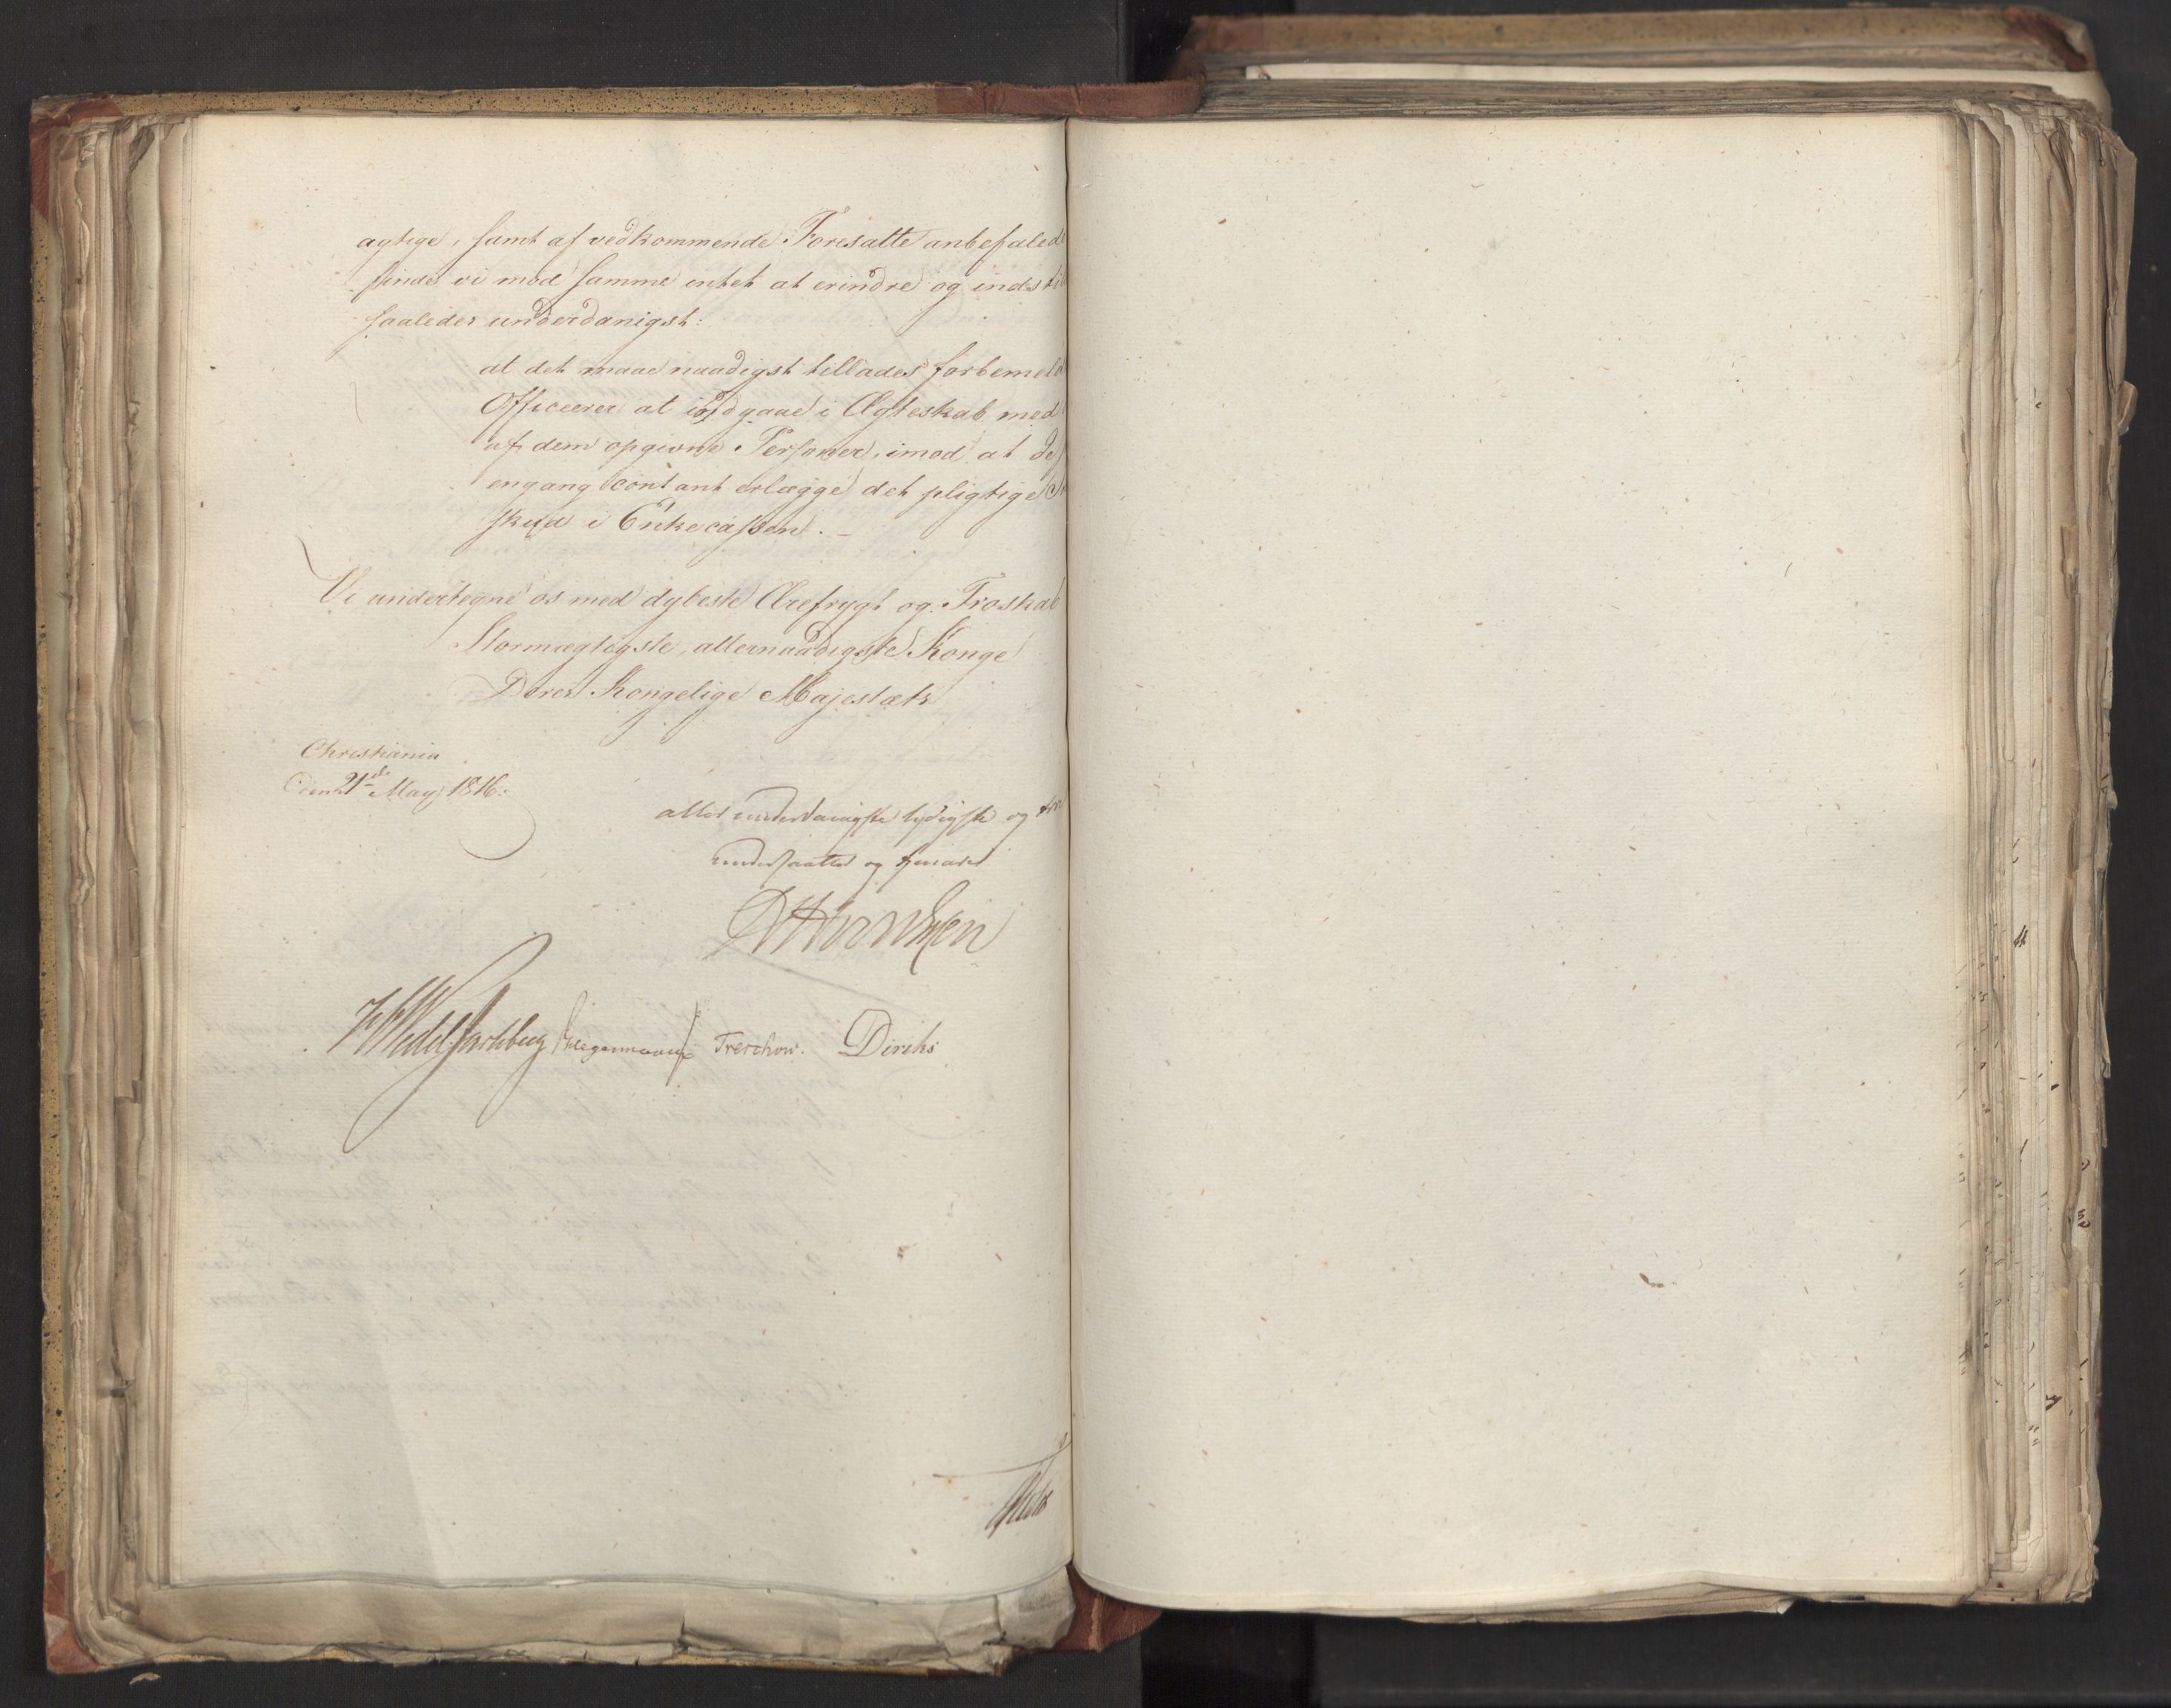 agtige, samt af vedkommende Foresatte anbefalede
finde vi mod samme intet at erindre og indstil
saaledes underdanigst:
at det maae naadigst tillades forbemeld
Officerer at indgaae i Ægteskab med
af dem opgivne Personer, imod at de
engang contant erlægge det pligtige
skud i Enkecassen. —
Vi undertegne os med dybeste Ærefrygt og Troskab
Stormægtigste, allernaadigste Konge
Deres Kongelige Majestæts
Christiania
den 21de May 1816.
allerunderdanigste lydigste og troe
undersaatter og tienere
HWedel Jarlsberg Hegermann Treschow. Diriks